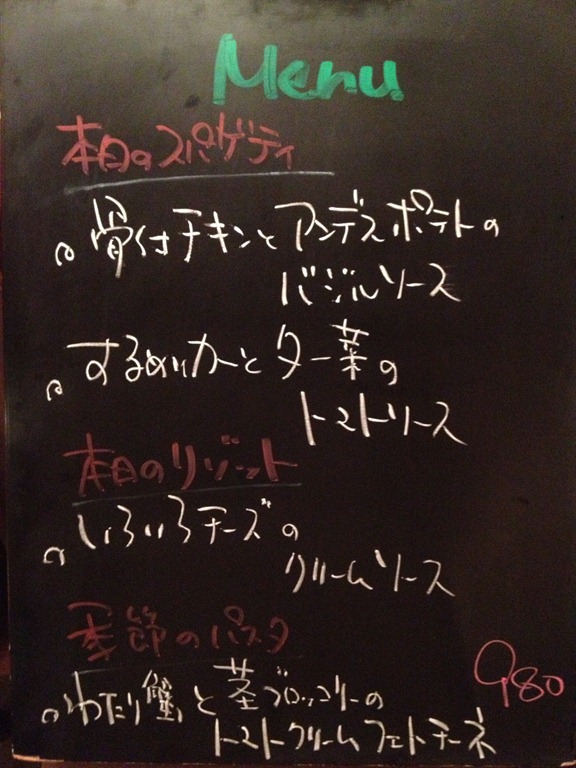 Menu
本日のスパゲティ
骨付チキンとアンデスポテトの
バジルソース
するめいかとター菜の
トマトソース
本日のリゾット
いろいろチーズの
クリームソース
季節のパスタ
わたり蟹と茎ブロッコリーの
トマトクリームフェトチーネ
980